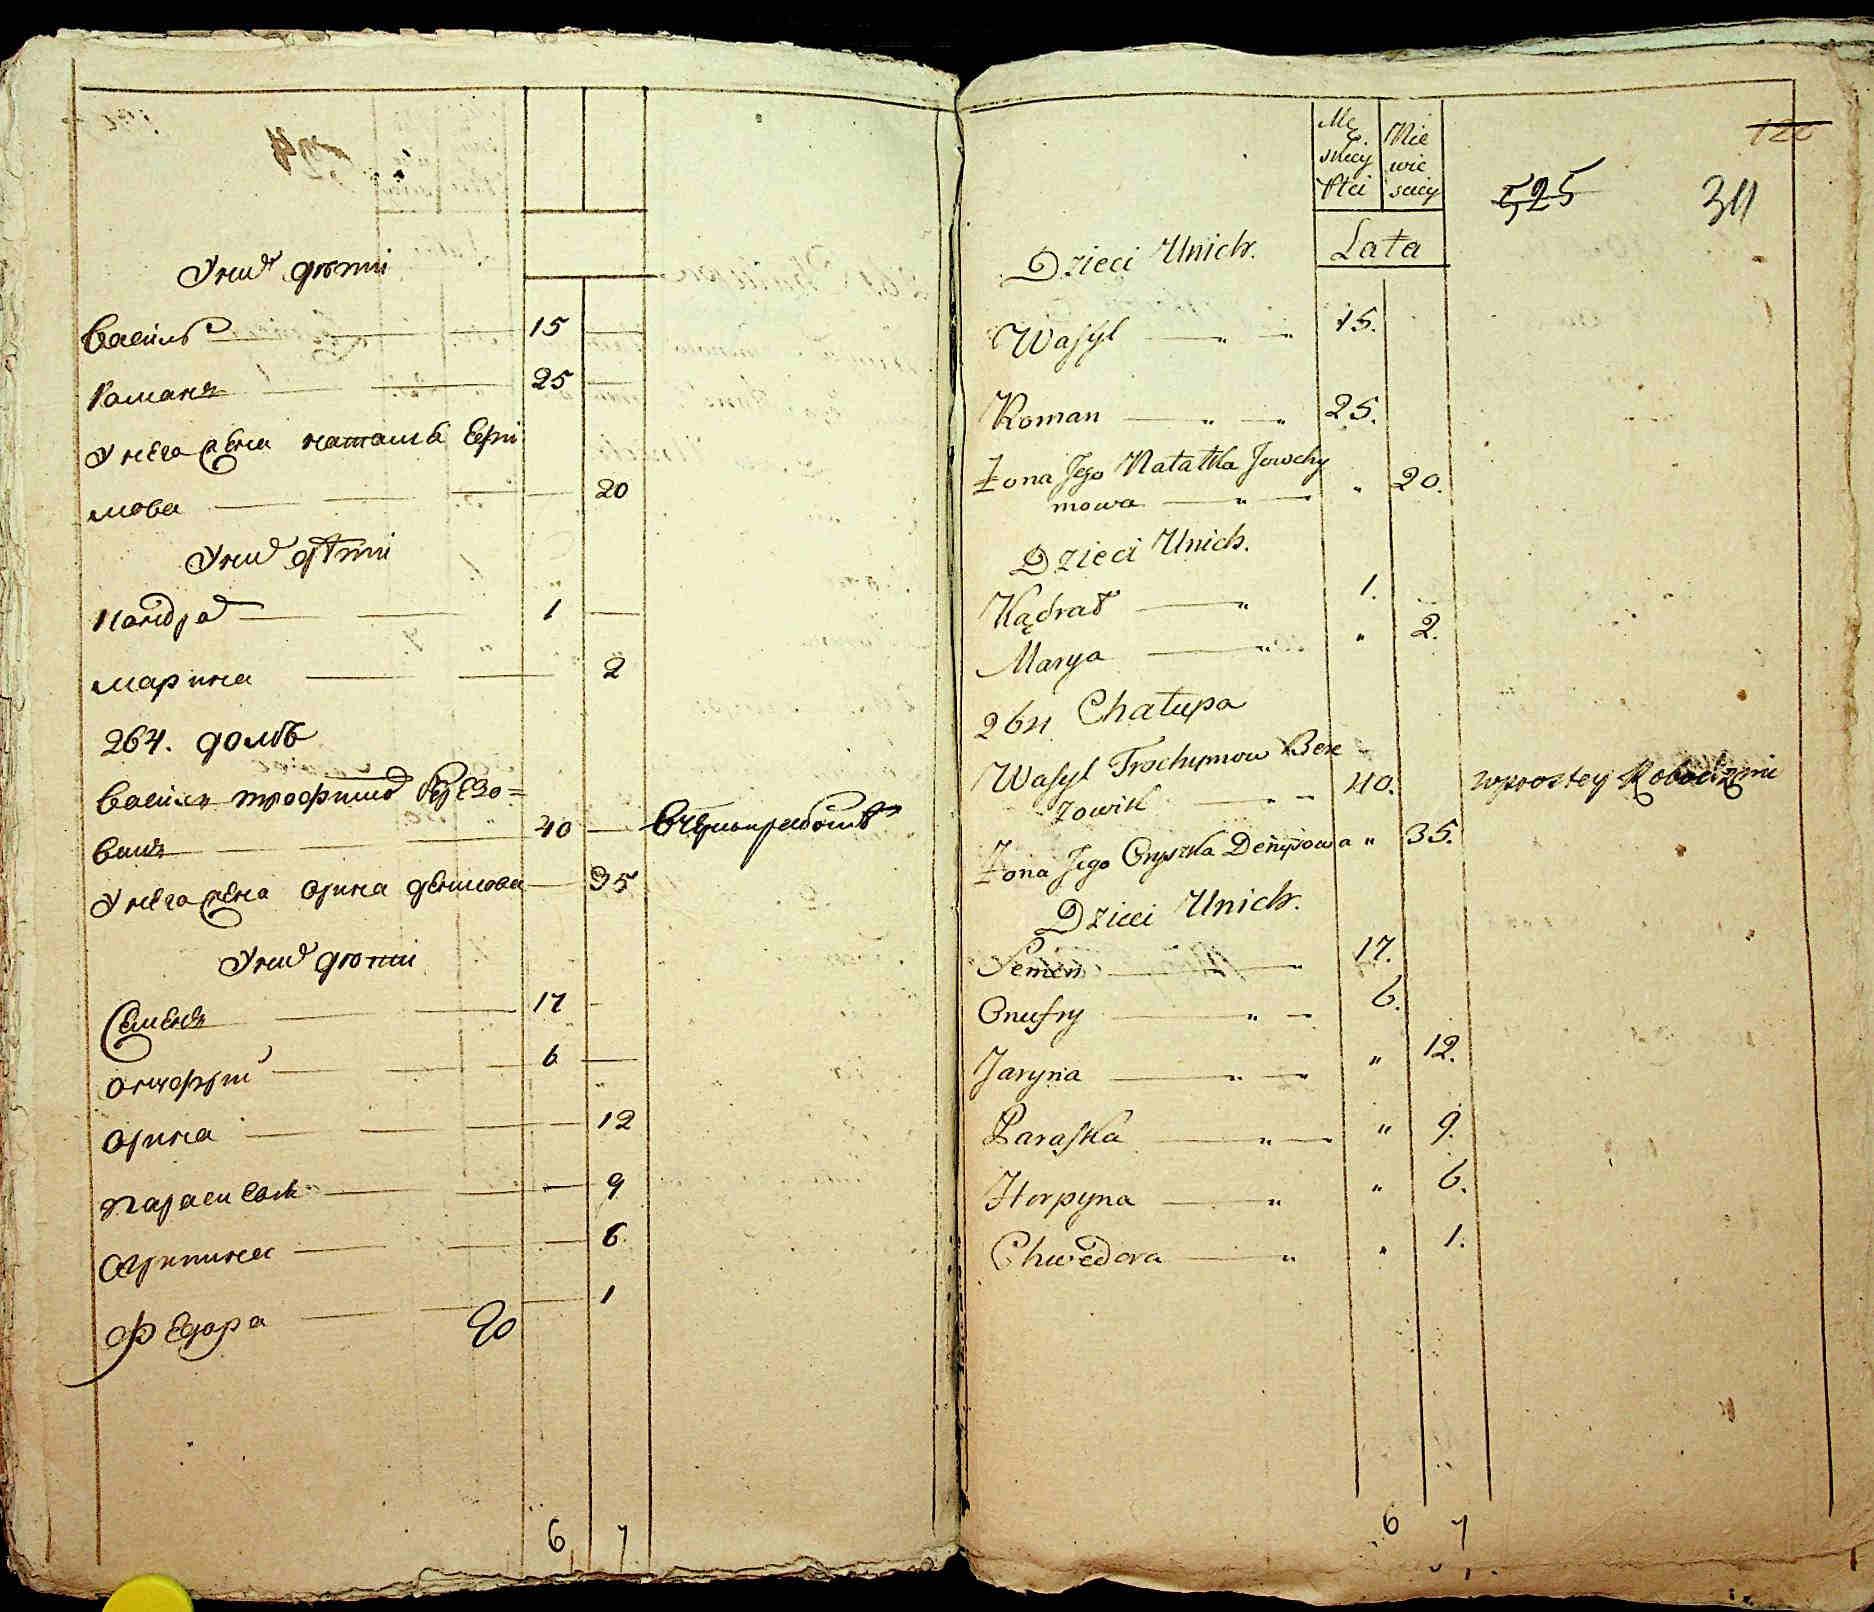 У них дѣти
Василь 15
Романъ 25
У него жена наталья Ефи
мова 20
У них дѣти
Кондра 1
марина 2
264. домъ
Василъ трофимо Березо=
викъ 40 в черноработи
У него жена орина денисова 35
У них дѣти
Семенъ 17
онофрий 6
орина 12
параскова 9
огрипина 6
Федора 1
20
6 7
120
Mę
skiey
Płci
Nie
wie
sciey
525
311
Dzieci Unich.
Lata
Wasyl 15.
Roman 25.
Żona Jego Natałka Jowchy
mowa " 20.
Dzieci Unich.
Kądrat 1.
Marya " 2.
264 Chałupa
Wasyl Trochymow Bere
zowik 40. wprostey Robociznie
Żona Jego Oryszka Denysowa " 35.
Dzieci Unich.
Semen 17.
Onufry 6.
Jaryna " 12.
Paraska " 9.
Horpyna " 6.
Chwedora " 1.
6 7